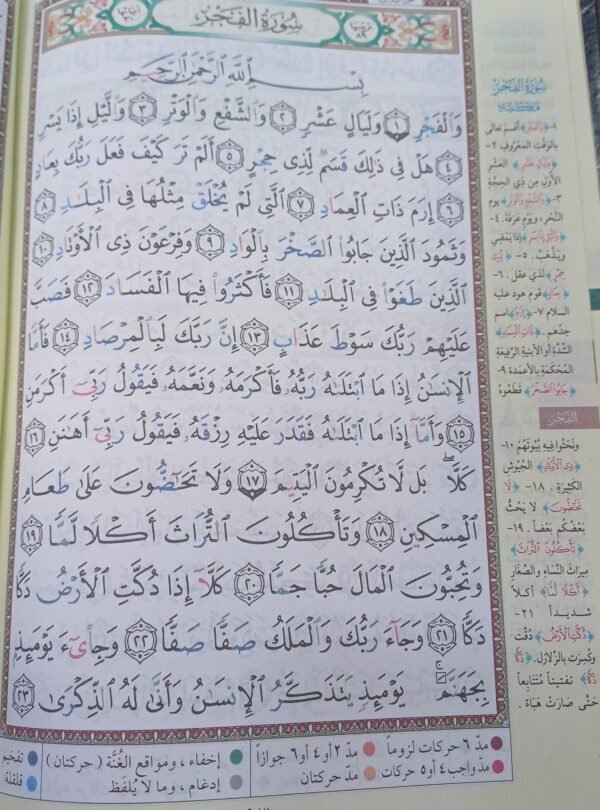 سُورَةُ الفَجْرِ
بِسْمِ ٱللَّهِ ٱلرَّحْمَٰنِ ٱلرَّحِيمِ
وَٱلْفَجْرِ ١ وَلَيَالٍ عَشْرٍ ٢ وَٱلشَّفْعِ وَٱلْوَتْرِ ٣ وَٱلَّيْلِ إِذَا يَسْرِ
٤ هَلْ فِى ذَٰلِكَ قَسَمٌ لِّذِى حِجْرٍ ٥ أَلَمْ تَرَ كَيْفَ فَعَلَ رَبُّكَ بِعَادٍ
٦ إِرَمَ ذَاتِ ٱلْعِمَادِ ٧ ٱلَّتِى لَمْ يُخْلَقْ مِثْلُهَا فِى ٱلْبِلَٰدِ ٨
وَثَمُودَ ٱلَّذِينَ جَابُوا۟ ٱلصَّخْرَ بِٱلْوَادِ ٩ وَفِرْعَوْنَ ذِى ٱلْأَوْتَادِ ١٠
ٱلَّذِينَ طَغَوْا۟ فِى ٱلْبِلَٰدِ ١١ فَأَكْثَرُوا۟ فِيهَا ٱلْفَسَادَ ١٢ فَصَبَّ
عَلَيْهِمْ رَبُّكَ سَوْطَ عَذَابٍ ١٣ إِنَّ رَبَّكَ لَبِٱلْمِرْصَادِ ١٤ فَأَمَّا
ٱلْإِنسَٰنُ إِذَا مَا ٱبْتَلَىٰهُ رَبُّهُۥ فَأَكْرَمَهُۥ وَنَعَّمَهُۥ فَيَقُولُ رَبِّىٓ أَكْرَمَنِ
١٥ وَأَمَّآ إِذَا مَا ٱبْتَلَىٰهُ فَقَدَرَ عَلَيْهِ رِزْقَهُۥ فَيَقُولُ رَبِّىٓ أَهَٰنَنِ ١٦
كَلَّا ۖ بَل لَّا تُكْرِمُونَ ٱلْيَتِيمَ ١٧ وَلَا تَحَٰٓضُّونَ عَلَىٰ طَعَامِ
ٱلْمِسْكِينِ ١٨ وَتَأْكُلُونَ ٱلتُّرَاثَ أَكْلًا لَّمًّا ١٩
وَتُحِبُّونَ ٱلْمَالَ حُبًّا جَمًّا ٢٠ كَلَّآ إِذَا دُكَّتِ ٱلْأَرْضُ دَكًّا
دَكًّا ٢١ وَجَآءَ رَبُّكَ وَٱلْمَلَكُ صَفًّا صَفًّا ٢٢ وَجِا۟ىٓءَ يَوْمَئِذٍۭ
بِجَهَنَّمَ ۚ يَوْمَئِذٍ يَتَذَكَّرُ ٱلْإِنسَٰنُ وَأَنَّىٰ لَهُ ٱلذِّكْرَىٰ ٢٣
سُورَةُ الفَجْرِ
مَكِّيَّة
١- ﴿وَالْفَجْرِ﴾ أقسم تعالى
بالوقت المعروف ٢-
﴿وَلَيَالٍ عَشْرٍ﴾ العشر
الأول من ذي الحجة
٣- ﴿وَالشَّفْعِ وَالْوَتْرِ﴾ يوم
النحر، ويوم عرفة. ٤-
﴿وَاللَّيْلِ إِذَا يَسْرِ﴾ إذا يمضي
ويذهب. ٥- ﴿لِذِي
حِجْرٍ﴾ لذي عقل. ٦-
﴿بِعَادٍ﴾ قوم هود عليه
السلام ٧- ﴿إِرَمَ﴾ اسم
جدهم. ﴿ذَاتِ الْعِمَادِ﴾
الشدة أو الأبنية الرفيعة
المحكمة بالأعمدة ٩-
﴿جَابُوا الصَّخْرَ﴾ قطعوه
الفَجْرِ
ونحتوا فيه بيوتهم ١٠-
﴿ذِي الْأَوْتَادِ﴾ الجيوش
الكثيرة. ١٨- ﴿لَا
تَحَاضُّونَ﴾ لا يحث
بعضكم بعضا. ١٩-
﴿تَأْكُلُونَ التُّرَاثَ﴾
ميراث النساء والصغار
﴿أَكْلًا لَمًّا﴾ أكلا
شديدا ٢١-
﴿دُكَّتِ الْأَرْضُ﴾ دقت
وكسرت بالزلازل. ﴿دَكًّا
دَكًّا﴾ تفتيتا متتابعا
حتى صارت هباء.
مدّ ٦ حركات لزوماً مدّ ٢ أو ٤ أو ٦ جوازاً إخفاء، ومواقع الغُنَّة (حركتان) تفخيم
مدّ واجب ٤ أو ٥ حركات مدّ حركتان إدغام، وما لا يُلفَظ قلقلة